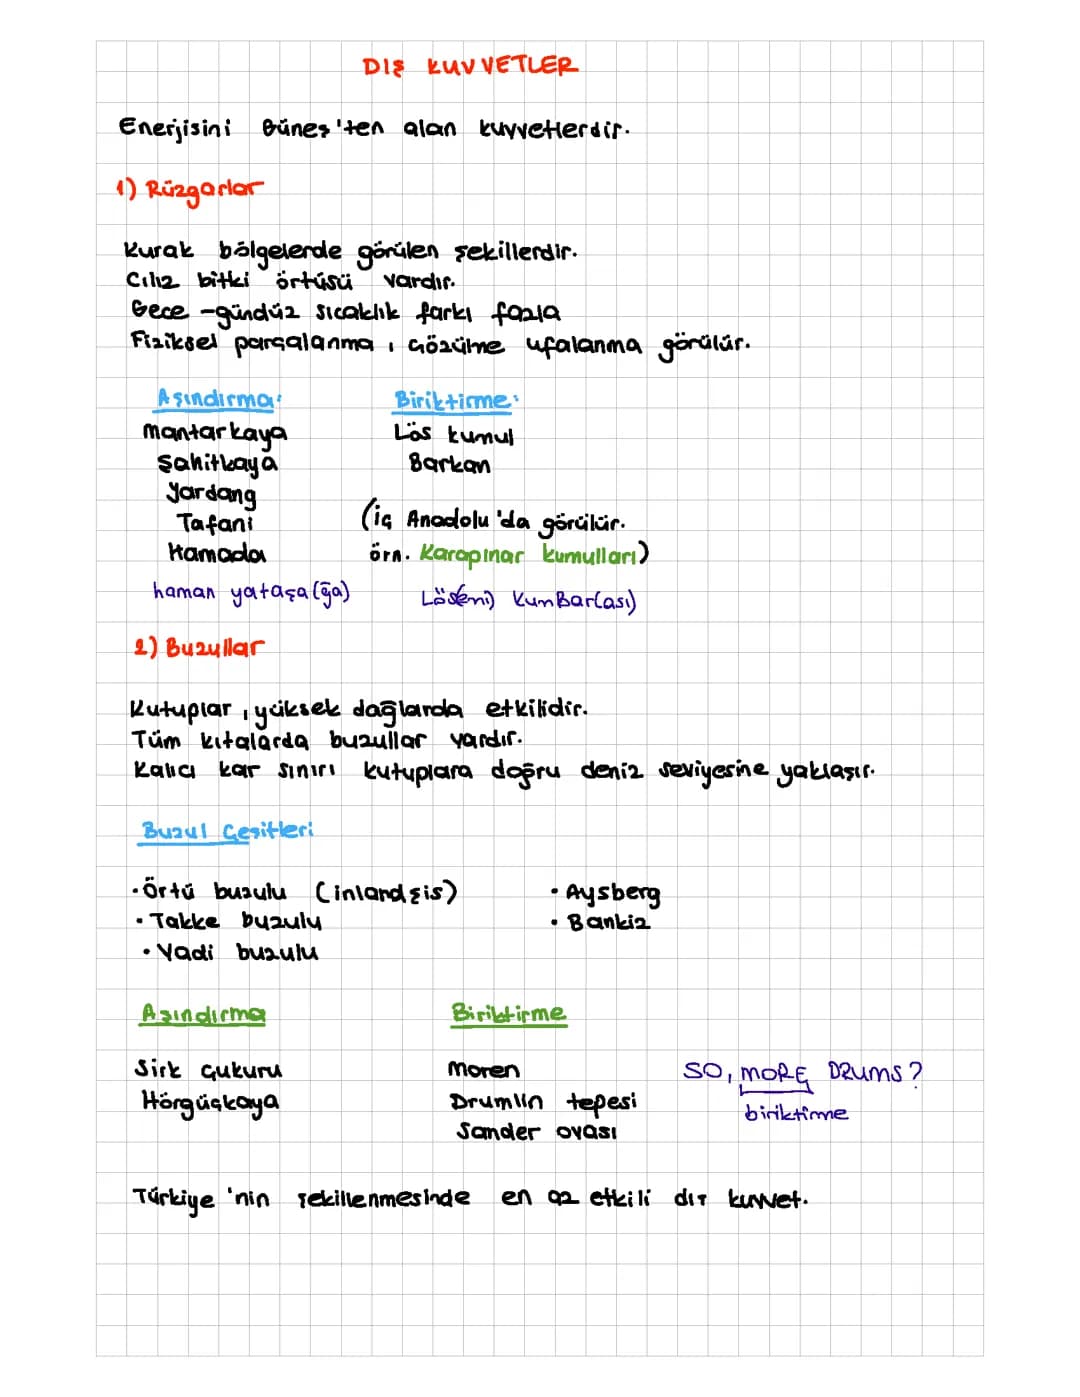 DIŞ KUVVETLER
Enerjisini Güneş'ten alan kuvvetlerdir.
1) Rüzgarlar
Kurak bölgelerde görülen şekillerdir.
Cılız bitki örtüsü vardır.
Gece-gündüz sıcaklık farkı fazla
Fiziksel parçalanma, çözülme ufalanma görülür.
Aşındırma: Biriktirme:
mantarkaya Lös kumul
Şahitkaya Barkan
Yardang
Tafani (iç Anadolu'da görülür.
Hamada örn. Karapınar kumulları)
haman yataşa(ğa) Lös(eni) KumBar(ası)
2) Buzullar
Kutuplar, yüksek dağlarda etkilidir.
Tüm kıtalarda buzullar vardır.
Kalıcı kar sınırı kutuplara doğru deniz seviyesine yaklaşır.
Buzul Çeşitleri
• Örtü buzulu (inlandsis) • Aysberg
• Takke buzulu • Bankiz
• Vadi buzulu
Aşındırma Biriktirme
Sirk çukuru moren SO, MORE DRUMS?
Hörgüçkaya Drumlin tepesi biriktirme
Sander ovası
Türkiye'nin şekillenmesinde en az etkili dış kuvvet.